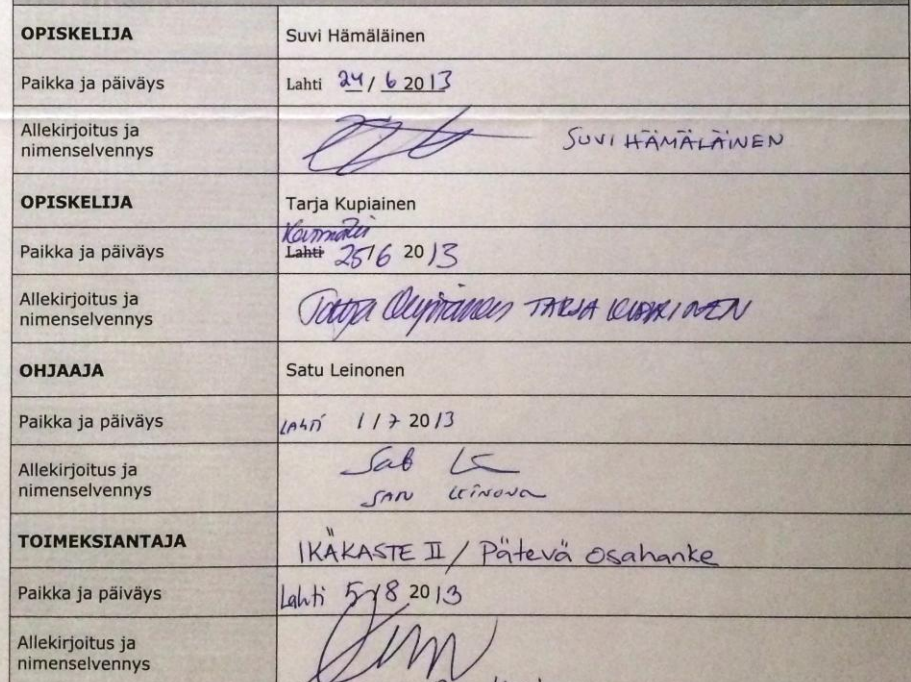 OPISKELIJA Suvi Hämäläinen
Paikka ja päiväys Lahti 24 / 6 2013
Allekirjoitus ja
nimenselvennys SUVI HÄMÄLÄINEN
OPISKELIJA Tarja Kupiainen
Paikka ja päiväys Lahti 25/6 2013
Allekirjoitus ja
nimenselvennys Tarja Kupiainen TARJA KUPIAINEN
OHJAAJA Satu Leinonen
Paikka ja päiväys LAHTI 1 / 7 2013
Allekirjoitus ja
nimenselvennys
TOIMEKSIANTAJA IKÄKASTE II / Pätevä osahanke
Paikka ja päiväys Lahti 5/8 2013
Allekirjoitus ja
nimenselvennys